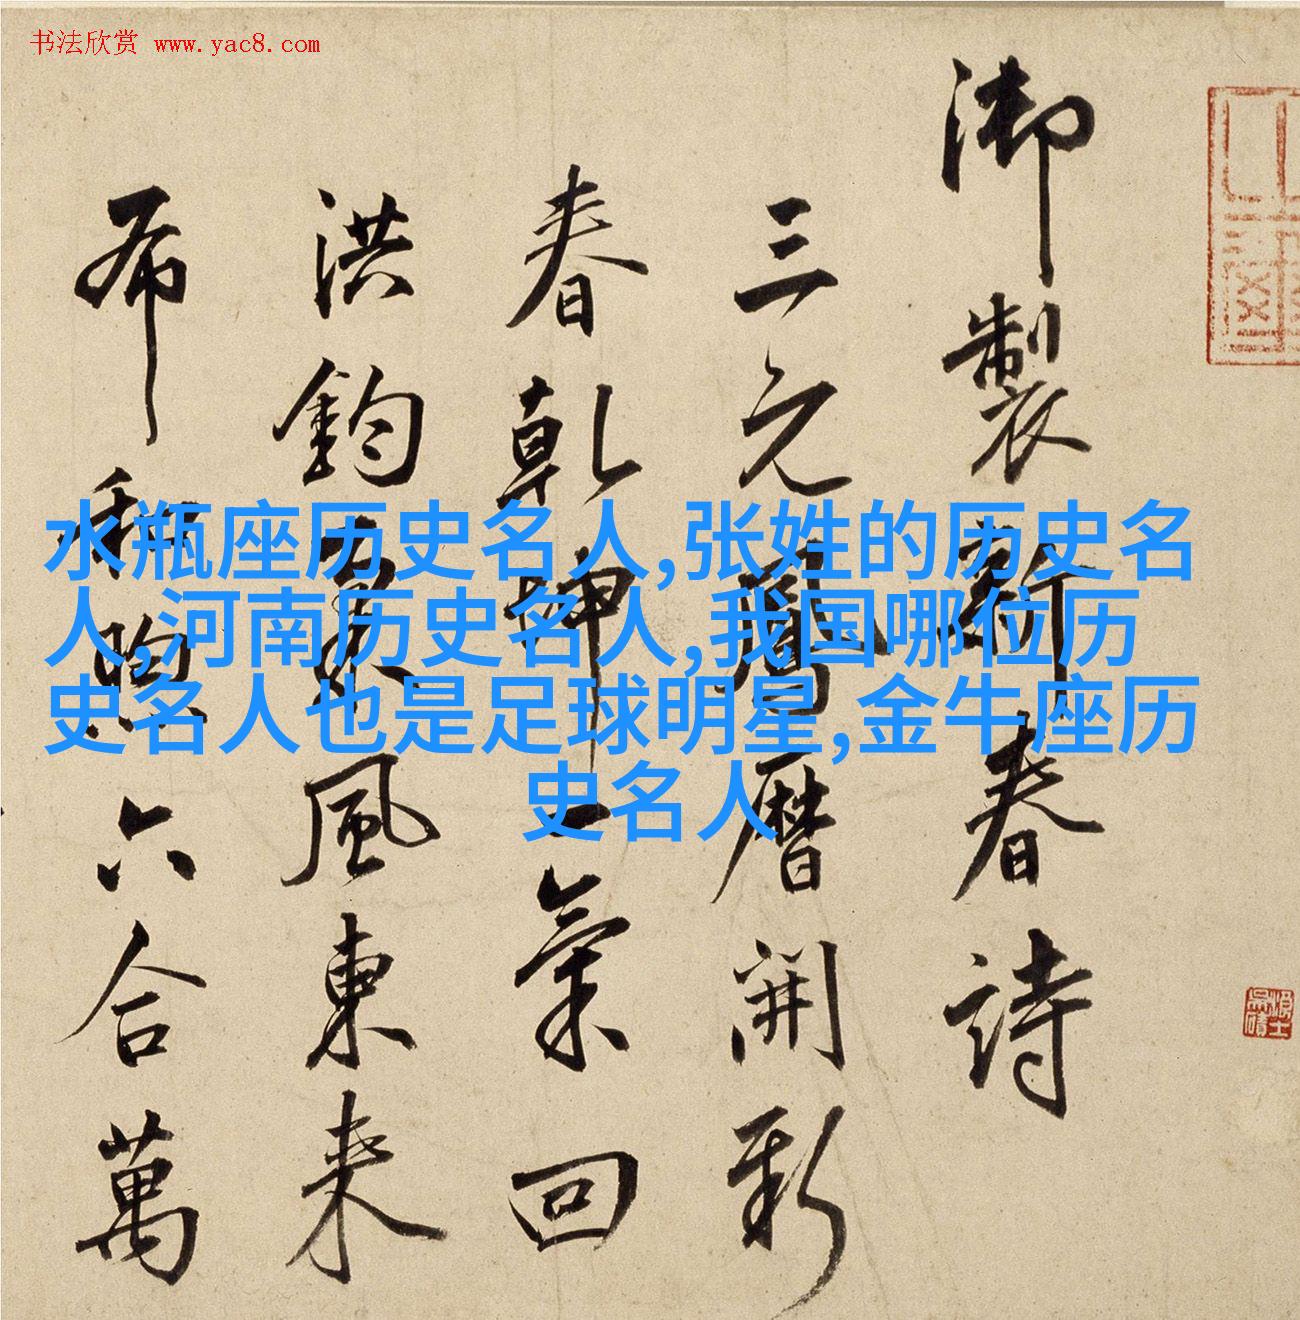 书法欣赏 www.yac8.com
御製新春詩
三元鳳暦開新
春乾坤一氣回
洪鈞風東来
布和煦六合萬
水瓶座历史名人,张姓的历史名
人,河南历史名人,我国哪位历
史名人也是足球明星,金牛座历
史名人